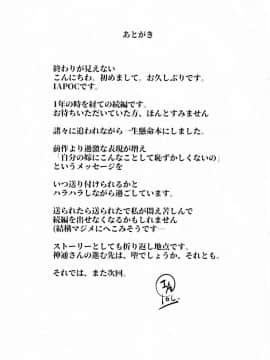 あとがき
終わりが見えない
こんにちわ、初めまして、お久しぶりです。
IAPOCです。
1年の時を経ての続編です。
お待ちいただいていた方、ほんとすみません
諸々に追われながら一生懸命本にしました。
前作より過激な表現が増え
「自分の嫁にこんなことして恥ずかしくないの」
というメッセージを
いつ送り付けられるかと
ハラハラしながら過ごしています。
送られたら送られたで私が悶え苦しんで
続編を出せなくなるかもしれません
(結構マジメにへこみそうです…
ストーリーとしても折り返し地点です。
神通さんの進む先は、堕でしょうか、それとも。
それでは、また次回。